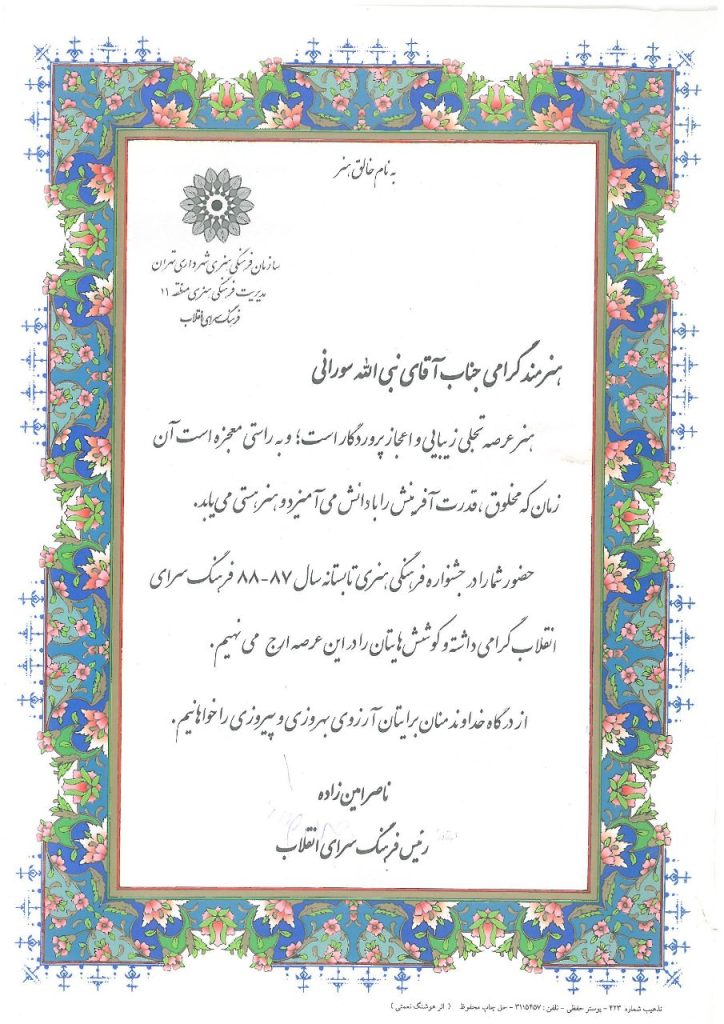 به نام خالق هنر
سازمان فرهنگی هنری شهرداری تهران
مدیریت فرهنگی هنری منطقه ۱۱
فرهنگ سرای انقلاب
هنرمند گرامی جناب آقای نبی الله سورانی
هنر عرصه تجلی زیبایی و اعجاز پروردگار است؛ و به راستی معجزه است آن
زمان که مخلوق، قدرت آفرینش را با دانش می آمیزد و هنر هستی می یابد.
حضور شما را در جشنواره فرهنگی هنری تابستانه سال ۸۷-۸۸ فرهنگ سرای
انقلاب گرامی داشته و کوشش هایتان را در این عرصه ارج می نهیم.
از درگاه خداوند منان برایتان آرزوی بهروزی و پیروزی را خواهانیم.
ناصر امین زاده
رئیس فرهنگ سرای انقلاب
تذهیب شماره ۴۲۳ - پوستر حفظی - تلفن: ۳۱۱۵۴۵۷ - حق چاپ محفوظ ( اثر هوشنگ نعمتی )